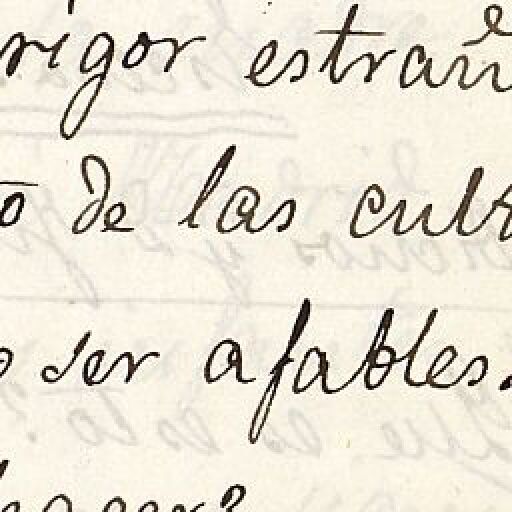 rigor estrañ
o de las cul
o ser afables.